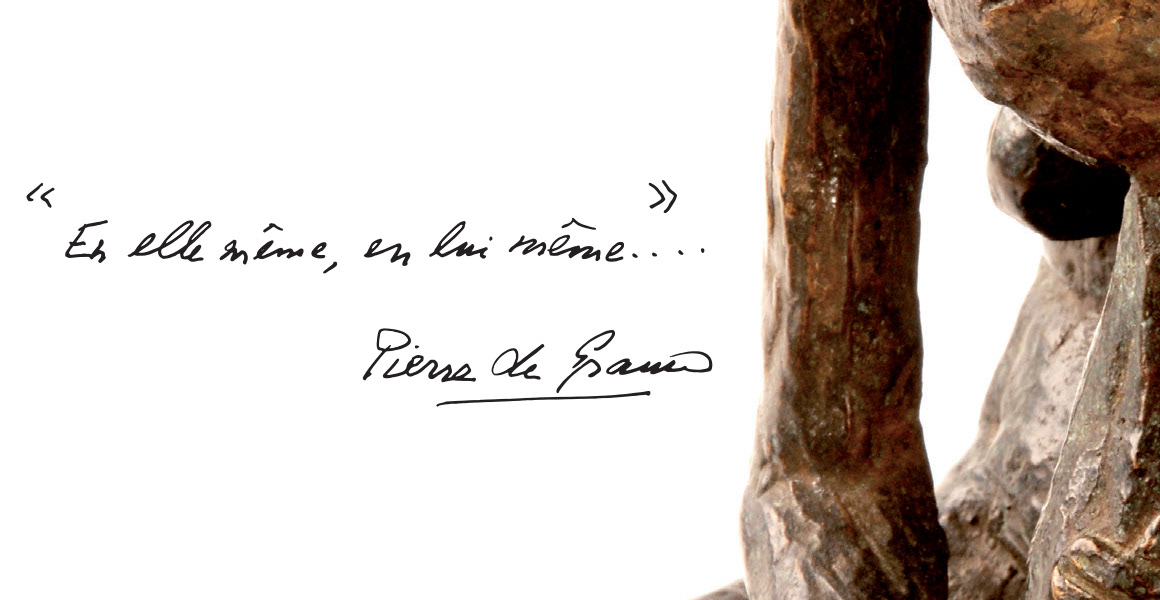 « En elle même, en lui même.... »
Pierre de Grauw